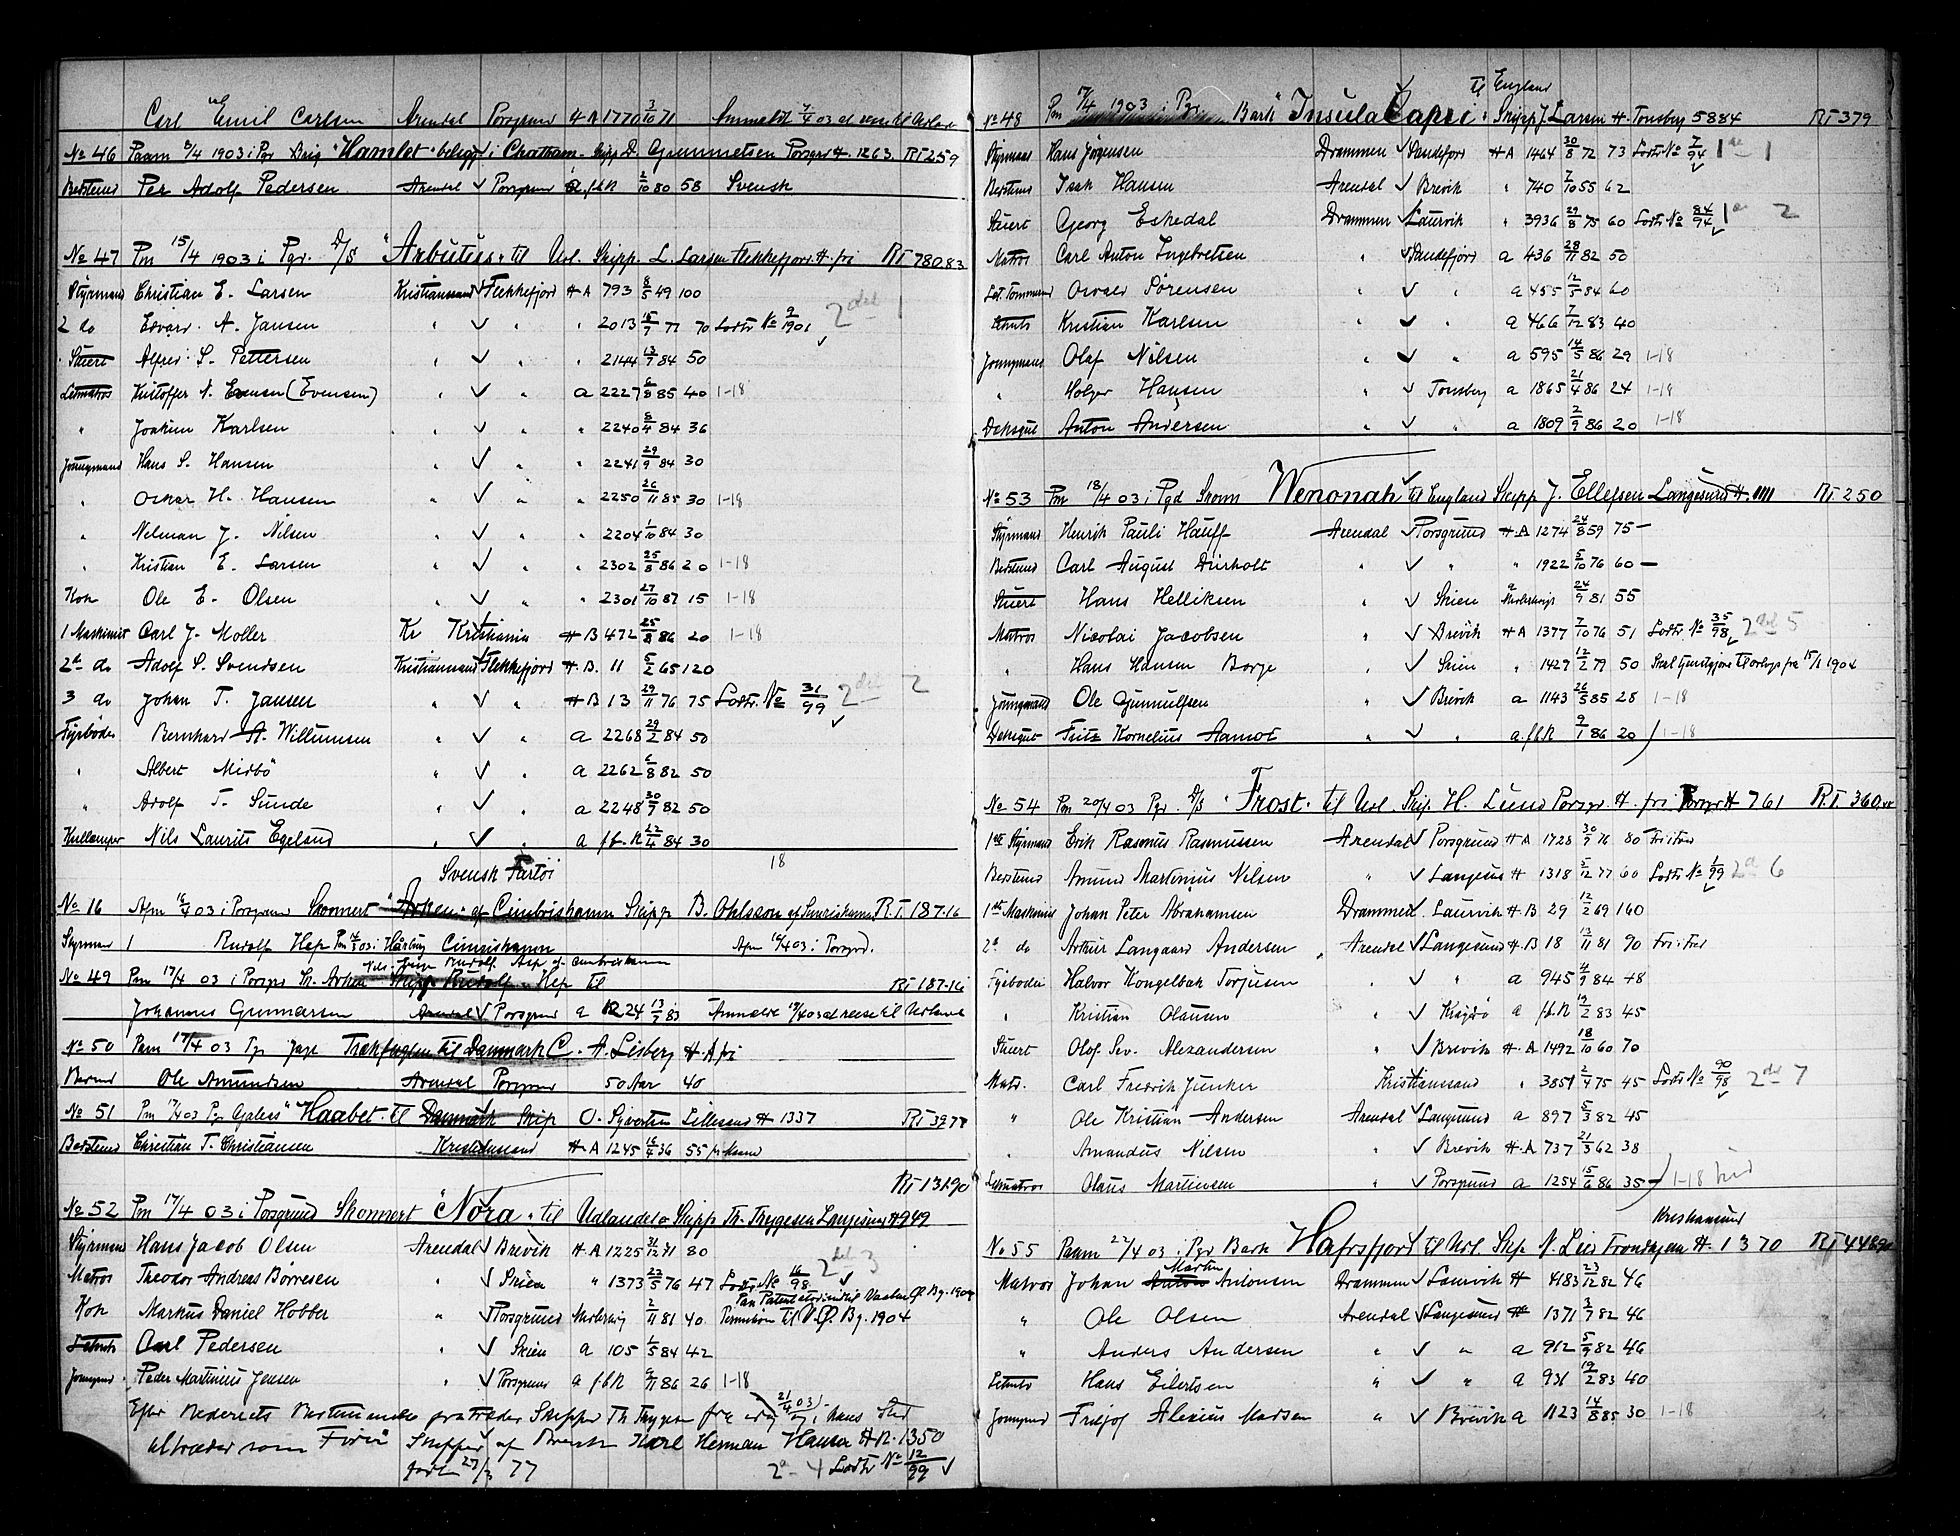 Carl Emil Carlsen Arendal Porsgrund H A 1770 3/10 71 Anmeldt 7/4 03 at reise til
No 46 Paam 8/4 1903 i Pgr Brig "Hamlet" beligg i Chatham Skip D. Gjermetsen Porsgr H. 1263. RT 259
Bedstmd Per Adolf Pedersen Arendal Porsgrund a. fbR 2/10 80 58 Svensk
No 47 Pm 15/4 1903 i Pgr. D/S "Arbutus" til Udl. Skipp. L. Larsen Flekkefjord H. fri RT 780.83
Styrmand Christian E. Larsen Kristianssand Flekkefjord H A 793 8/5 49 100
2 do Edvard. A. Jansen " " " 2013 15/7 77 70 Lodtr No 9/1901 2det 1
Stuert Alfred S. Pettersen " " " 2144 13/7 84 50
Letmatros Kristoffer N. Evensen (Evensen) " " a 2227 6/8 85 40 1-18
" Joakim Karlsen " " " 2240 8/4 84 36
Jungmand Hans S. Hansen " " " 2241 29/9 84 30
" Oskar H. Hansen " " " 2250 26/11 85 30 1-18
" Nelman J. Nilsen " " " 2204 1/10 84 30
" Kristian E. Larsen " " " 2302 25/8 86 20 1-18
Kok Ole E. Olsen " " " 2301 27/10 87 15 1-18
1 Maskinist Carl J. Moller Kr Kristiania H B 472 25/8 86 20 1-18
2d do Adolf S. Svendsen Kristianssand Flekkefjord H. B. 11 5/2 65 120
3 do Johan T. Jansen " " H B 13 29/11 76 75 Lodtr. No 31/99 2det 2
Fyrbøder Bernhard A. Willumsen " " a 2268 29/2 84 50
" Albert Midbö " a 2262 6/8 82 50
" Adolf T. Sunde " a 2248 30/9 82 50
Kullemper Nils Laurits Egeland " " a f.b.R 22/4 84 30
Svensk Fartöi 18
No 16 Afm 16/4 03 i Porsgrund Skonnert "Arken" af Cimbrishamn Skipp B. Ohlsson af Simrishamn R.T. 187.16
Styrmand 1 Rudolf Hep Pm 14/3 03 i Harburg Cimrishamn Afm 16/4 03 i Porsgrd.
Rudolf Asp af Cimbrishamn
No 49 Pm 17/4 03 i Porsgr Sk. Arken Skipp Rudolf Hep til RT 187.16
Johannes Gunnarsen Arendal Porsgrund a 1224 13/7 83 Anmeldte 17/4 03 at reise til Udland
No 50 Paam 17/4 03 Pgr Jagt Trækfuglen til Danmark C. A. Lisberg H. A fri
Bedstmd Ole Amundsen Arendal Porsgrund 50 Aar 40
No 51 Pm 17/4 03 Pgr Galeas "Haabet" til Danmark Skip O. Syvertsen Lillesand H 1337 RT 39.77
Bedstemd Christian T. Christiansen Kristianssand H A 1245 16/4 36 55 pr Maaned
RT 131.90
No 52 Pm 17/4 03 i Porsgrund Skonnert "Nora" til Udlandet Skipp Th. Thygesen Langesund H 949
Styrmand Hans Jacob Olsen Arendal Brevik H A 1225 31/12 71 80
Matros Theodor Andreas Børresen " Skien " 1373 22/5 76 47 Lodtr No 16/98 2det 3
Kok Markus Daniel Hobber " Porsgrund 2/11 81 40 Permission til V. Pl. Bg. 1904
Letmts Carl Pedersen " Skien a 105 1/5 84 42
Jungmd Peder Martinius Jensen " Porsgrund a f.b.R 9/11 86 26 1-18
Efter Rederiets Bestemmelse fratræder Skipper Th Thygesen fra idag 21/4 03, i hans sted
tiltræder som Fører Skipper af Brevik Karl Herman Hansen H R. 1350
født 27/3 77 2d- 4 Lodtr No 12/99
No 48 Pm 17/4 1903 i Pgr Bark "Insula Capri" til England Skipp J. Larsen H. Tønsberg 5884 RT 379
Styrmand Hans Jørgensen Drammen Sandefjord H A 1464 30/8 72 73 Lodtr No 7/94 1ae 1
Bedstmd Isak Hansen Arendal Brevik " 740 7/10 55 62
Stuert Georg Eskedal Drammen Laurvik " 3936 29/8 75 60 Lodtr No 84/94 1ae 2
Matros Carl Anton Ingebretsen " Sandefjord a 436 28/11 82 50
Let. Tømmermd Osvald Sørensen " " a 455 12/5 84 60
Letmts Kristian Karlsen " a 466 7/12 83 40
Jungmand Olaf Nilsen " " a 595 14/5 86 29 1-18
" Holger Hansen " Tønsberg a 1865 21/4 86 24 1-18
Deksgut Anton Andersen " " a 1809 2/9 86 20 1-18
No 53 Pm 18/4 03 i Pgd Skonn Wenonah til England Skipp J. Ellefsen Langesund H. 1111 RT 250
Styrmand Henrik Pauli Hauff Arendal Porsgrund H A 1274 24/8 59 75 —
Bedstmd Carl August Dürholt " " " 1922 5/10 76 60 —
Stuert Hans Helliksen " Skien a 24/9 81 55
Matros Nicolai Jacobsen " Brevik H A 1377 7/10 76 51 Lodtr No 35/98 2det 5
" Hans Hansen Borge " Skien " 1427 12/2 79 50 Skal tjenstgjøre til orlogs fra 15/1 1904
Jungmand Ole Gunnulfsen " Brevik a 1143 26/5 85 28 1-18
Deksgut Fritz Kornelius Aamot " " a. fbR 9/1 86 20 1-18
No 54 Pm 20/4 03 Pgr. D/S "Frost" til Udl. Skip. H. Lund Porsgr. H. fri Porsgr H 761 R.T. 360
1ste Styrmand Erik Rasmus Rasmussen Arendal Porsgrund H A 1728 30/9 76 80 Fri.
Bedstmd Amund Martinius Nilsen " Langesund H 1318 5/12 77 60 Lodtr No 1/99 2d 6
1ste Maskinist Johan Peter Abrahamsen Drammen Laurvik H B 29 12/2 69 160
2d do Arthur Langaard Andersen Arendal Langesund H B 18 13/11 81 90
Fyrbøder Halvor Kongelbæk Torjusen " " a 945 4/9 84 48
" Kristian Olausen " Kragerø a f.b.R 19/2 83 45
Stuert Olof. Sev. Alexandersen " Brevik H. A 1492 18/10 60 70
Matr. Carl Fredrik Junker Kristianssand " 3851 2/4 75 45 Lodtr No 90/98 2det 7
" Ole Kristian Andersen Arendal Langesund a 897 5/3 82 45
" Amandus Nilsen " Brevik H. A 737 21/3 62 38
Letmatros Olaus Martinsen " Porsgrund a 1254 15/6 86 35 1-18
Kristiansund
No 55 Paam 22/4 03 i Pgr Bark Hafrsfjord til Udl. Skip. N. Lies Trondhjem H. 1370 RT 446
Matros Johan Martin Antonsen Drammen Laurvik H 4183 23/12 82 46
" Ole Olsen Arendal Langesund 1371 3/7 82 46
" Anders Andersen " " a 912 5/9 82 46
Letmts Hans Eilertsen " " a 931 19/2 83 40
Jungmd Fritjof Alexius Madsen " Brevik a 1123 14/8 85 30 1-18